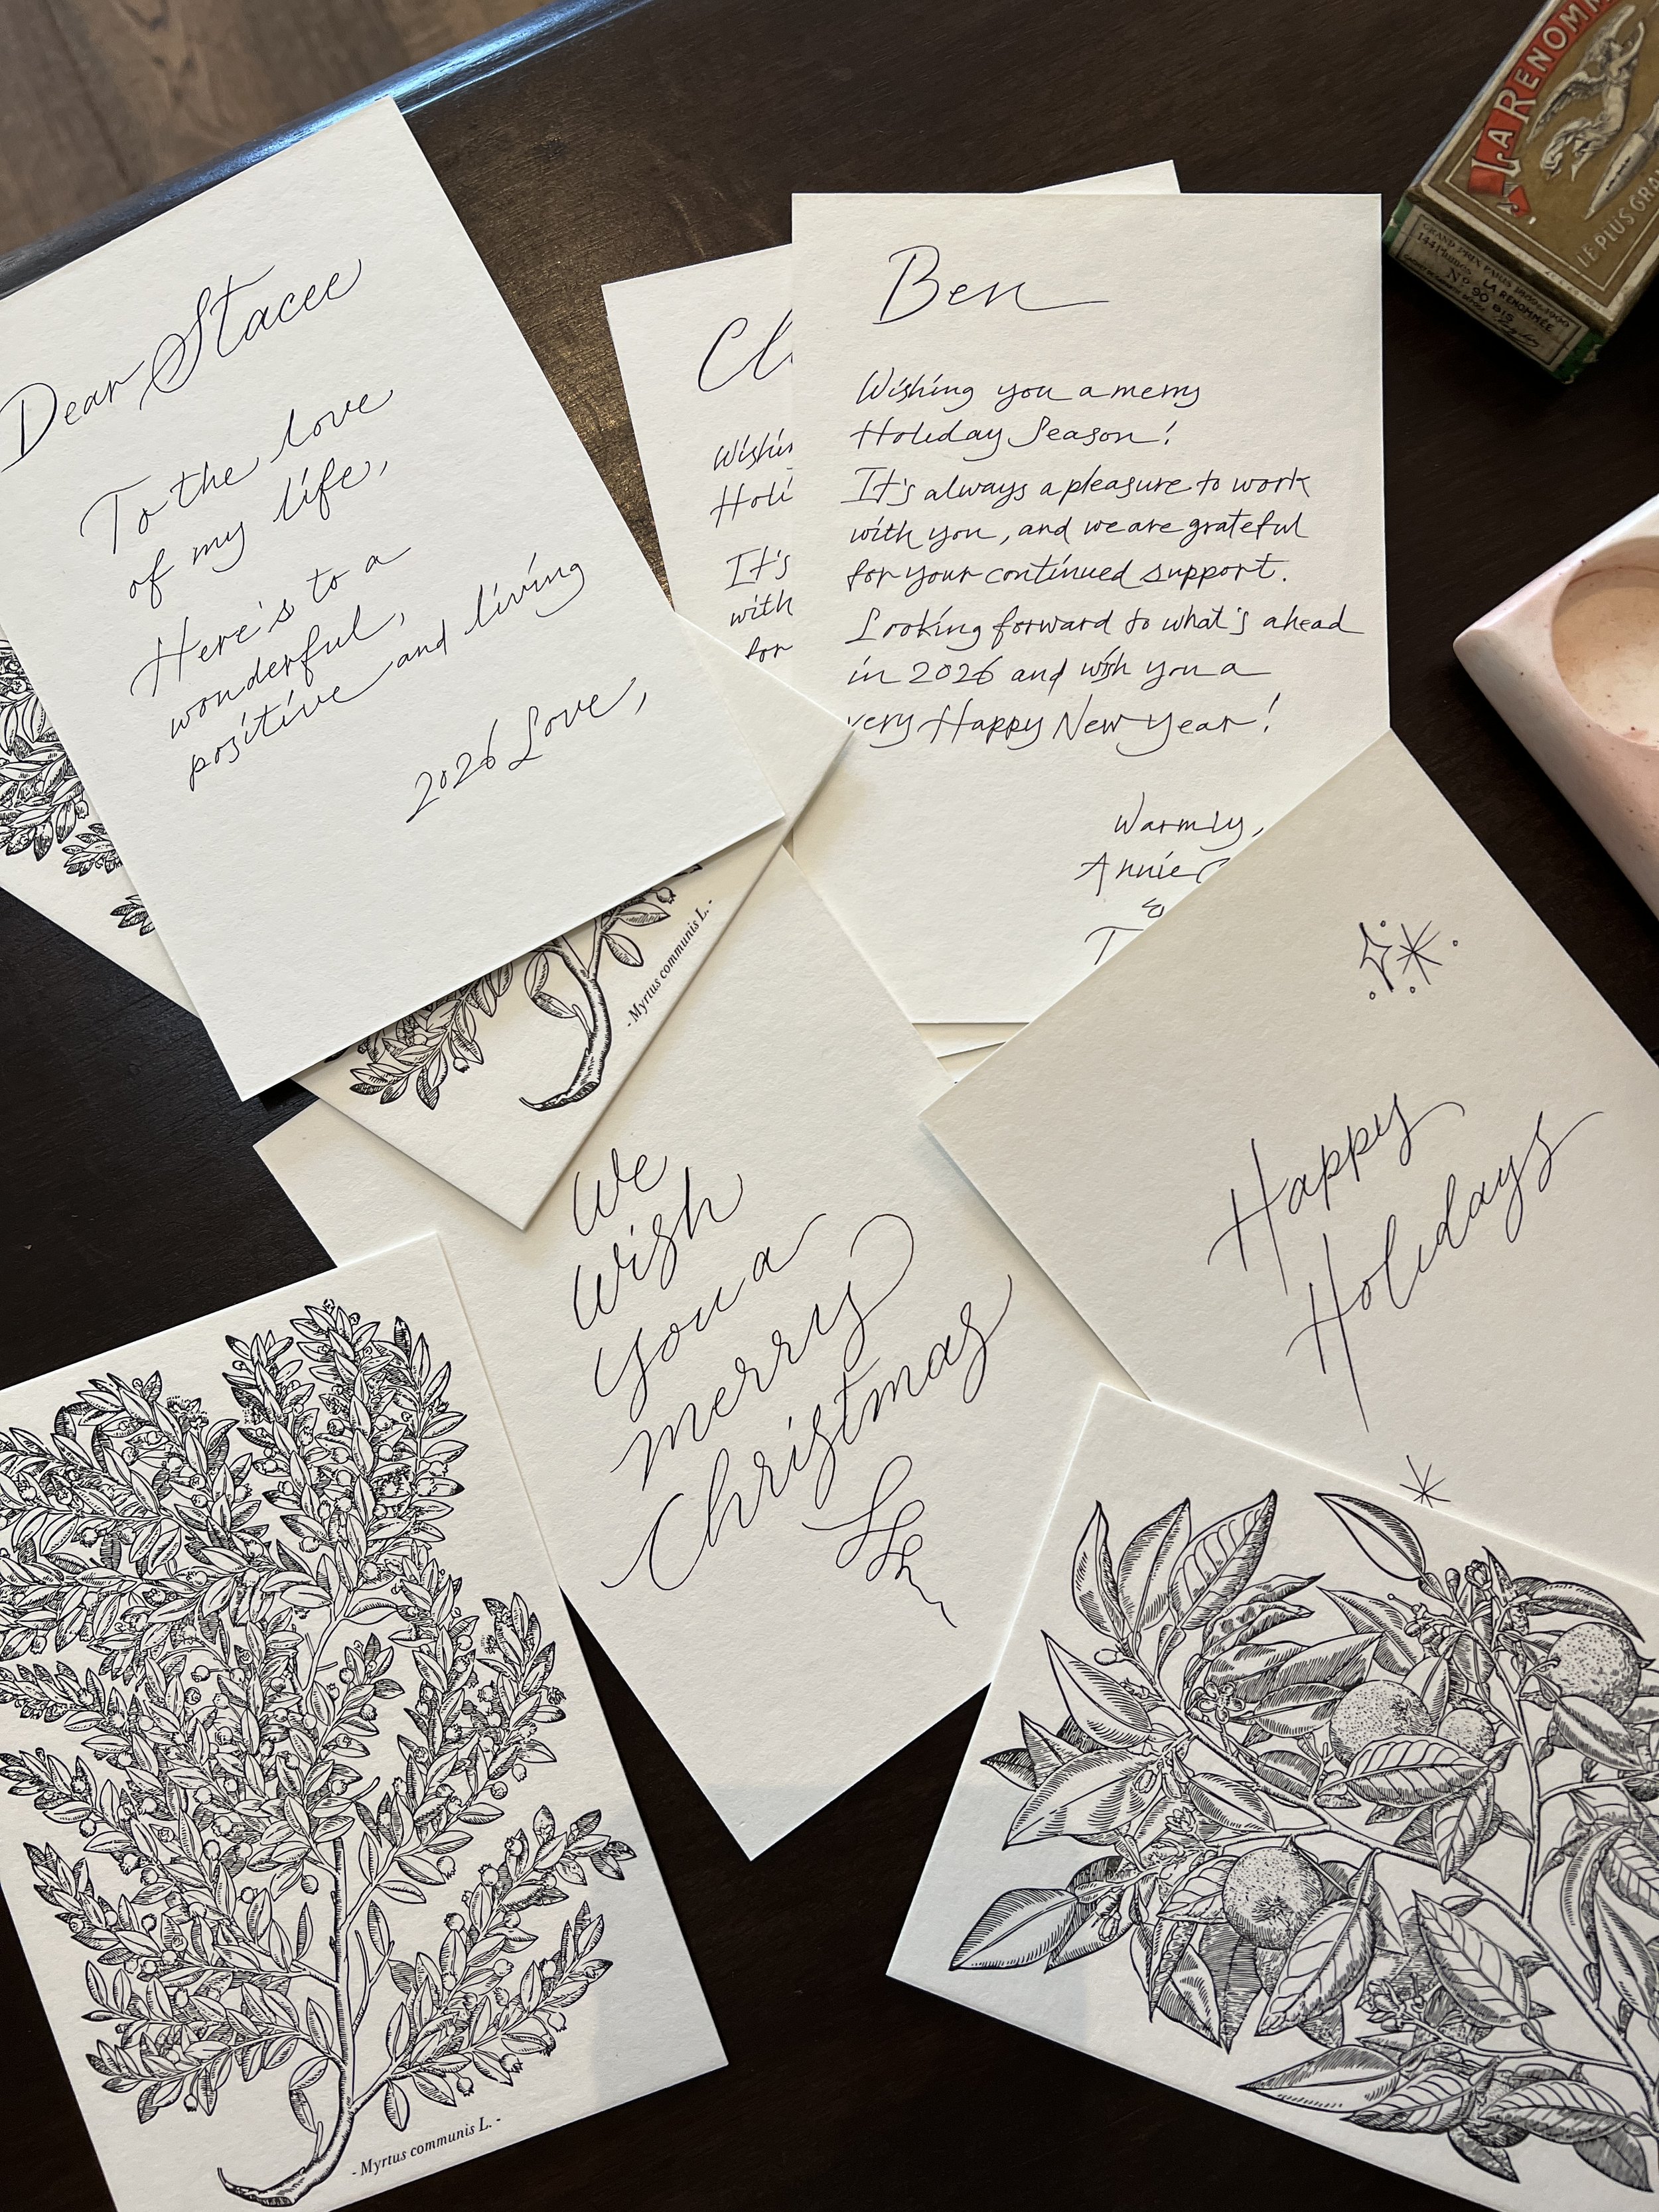 Dear Stacee
To the love
of my life,
Here's to a
wonderful,
positive and living
2026 Love,
Wishin
Holi
It's
with
for
Ben
Wishing you a merry
Holiday Season!
It's always a pleasure to work
with you, and we are grateful
for your continued support.
Looking forward to what's ahead
in 2026 and wish you a
very Happy New Year!
Warmly,
Annie
&
T
LA RENOMM
LE PLUS GRA
GRAND PRIX PARIS 1900
No 90 BIS LA RENOMMÉE
- Myrtus communis L. -
We
Wish
you a
merry
Christmas
Happy
Holidays
- Myrtus communis L. -